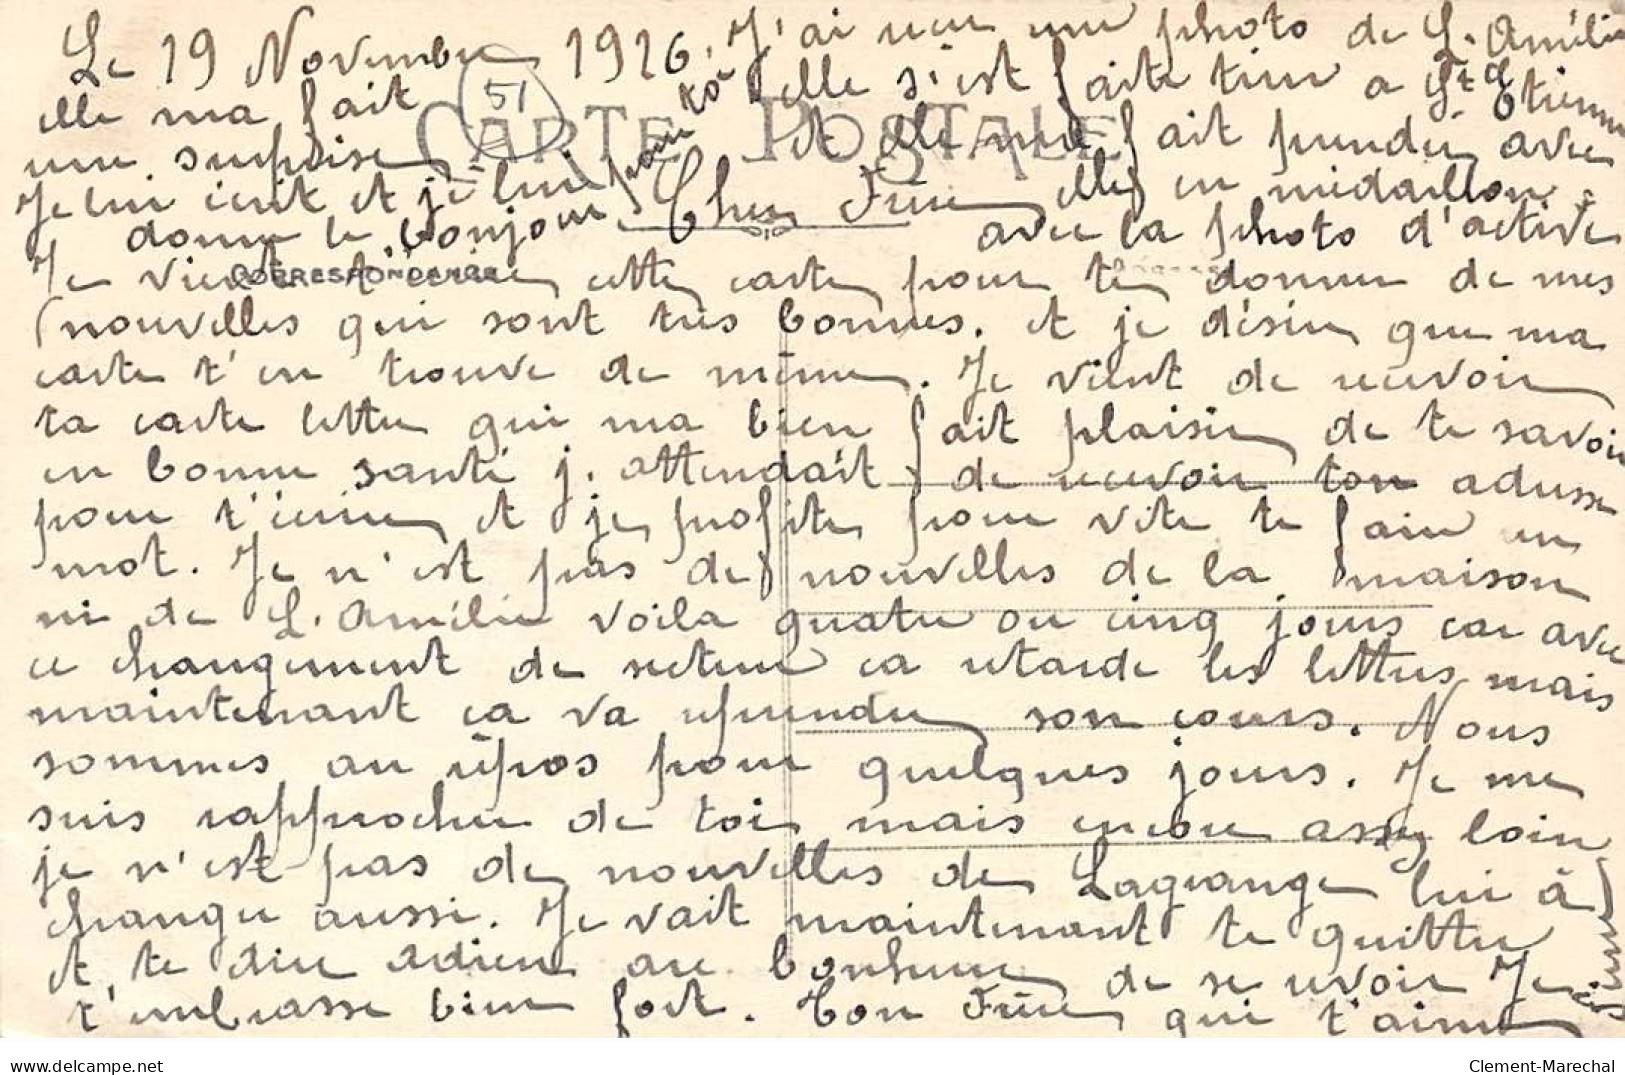 Le 19 Novembre 1916. J'ai reçu une photo de L. Amélie
elle s'est faite tirer a St Etienne
et elle me fait prendre avec
elle en médaillon
avec la photo d'active
elle ma fait
une surprise
Je lui écrit et je lui
donne le bonjour pour toi
51
CARTE POSTALE
Cher Frère
CORRESPONDANCE
Je vient t'écrire cette carte pour te donner de mes
nouvelles qui sont très bonnes. et je désire que ma
carte t'en trouve de même. Je vient de recevoir
ta carte lettre qui ma bien fait plaisir de te savoir
en bonne santé j. attendait de recevoir ton adresse
pour t'écrire et je profite pour vite te faire un
mot. Je n'est pas de nouvelles de la maison
ni de L. Amélie voila quatre ou cinq jours car avec
ce changement de secteur ca retarde les lettres mais
maintenant ca va reprendre son cours. Nous
sommes au repos pour quelques jours. Je me
suis rapprocher de toi mais encore assez loin
je n'est pas de nouvelles de Lagrange lui à
changer aussi. Je vait maintenant te quitter
et te dire adieu au bonheur de se revoir Je
t'embrasse bien fort. Ton Frère qui t'aime
delcampe.net
Clement-Marechal